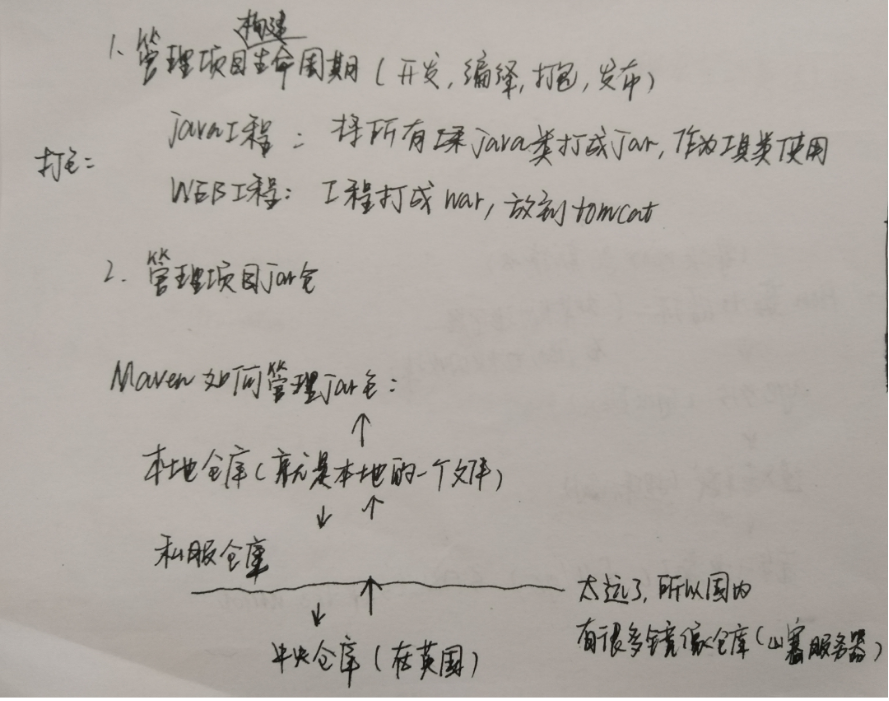 构建
1. 管理项目生命周期 (开发, 编绎, 打包, 发布)
打包:
java工程: 将所有java类打成jar, 作为工具类使用
WEB工程: 工程打成war, 放到tomcat
2. 管理项目jar仓
Maven 如何管理jar仓:
↑
本地仓库 (就是本地的一个文库)
↓ ↑
私服仓库
太远了, 所以国内
↓ ↑
有很多镜像仓库 (山寨服务器)
中央仓库 (在英国)